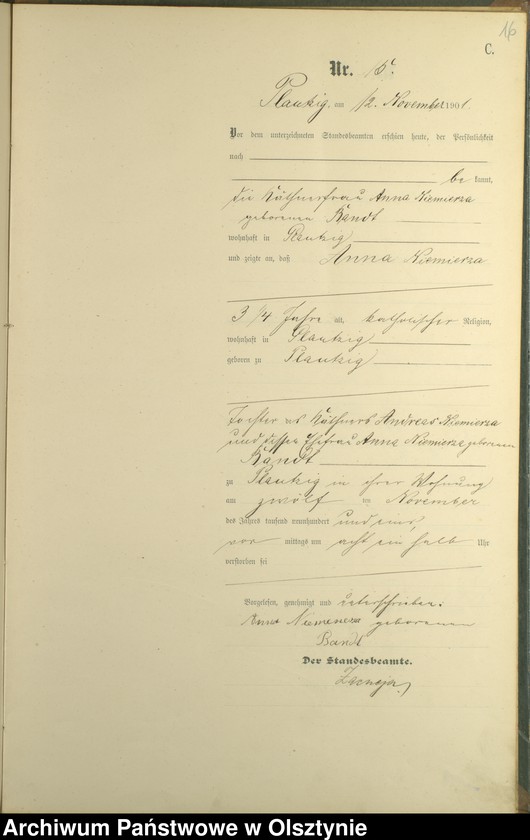 16
C.
Nr. 15.
Plautzig, am 12. November 1901.
Vor dem unterzeichneten Standesbeamten erschien heute, der Persönlichkeit
nach
be kannt,
die Käthnerfrau Anna Niemierza
geborenen Bandt
wohnhaft in Plautzig
und zeigte an, daß Anna Niemierza
3/4 Jahre alt, katholischer Religion,
wohnhaft in Plautzig
geboren zu Plautzig
Tochter des Käthners Andreas Niemierza
und dessen Ehefrau Anna Niemierza geborenen
Bandt
zu Plautzig in ihrer Wohnung
am zwölf ten November
des Jahres tausend neunhundert und eins,
vor mittags um acht ein halb Uhr
verstorben sei
Vorgelesen, genehmigt und unterschrieben:
Anna Niemierza geborenen
Bandt
Der Standesbeamte.
Archiwum Państwowe w Olsztynie